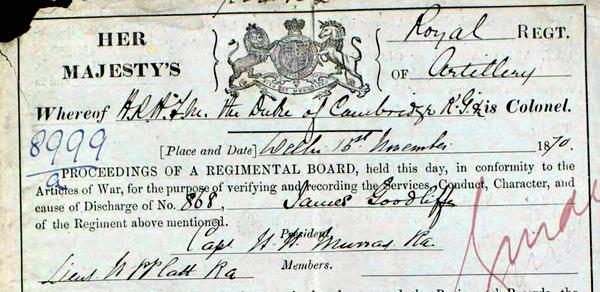 HER Royal REGT.
MAJESTY'S OF Artillery
Whereof H.R.H. F.M. the Duke of Cambridge K.G. is Colonel.
8999
[Place and Date] 15th November 1870.
PROCEEDINGS OF A REGIMENTAL BOARD, held this day, in conformity to the
Articles of War, for the purpose of verifying and recording the Services, Conduct, Character, and
cause of Discharge of No. 868. James Goodliffe
of the Regiment above mentioned.
President
Capt H. H. Murray RA
Lieut Platt RA Members.